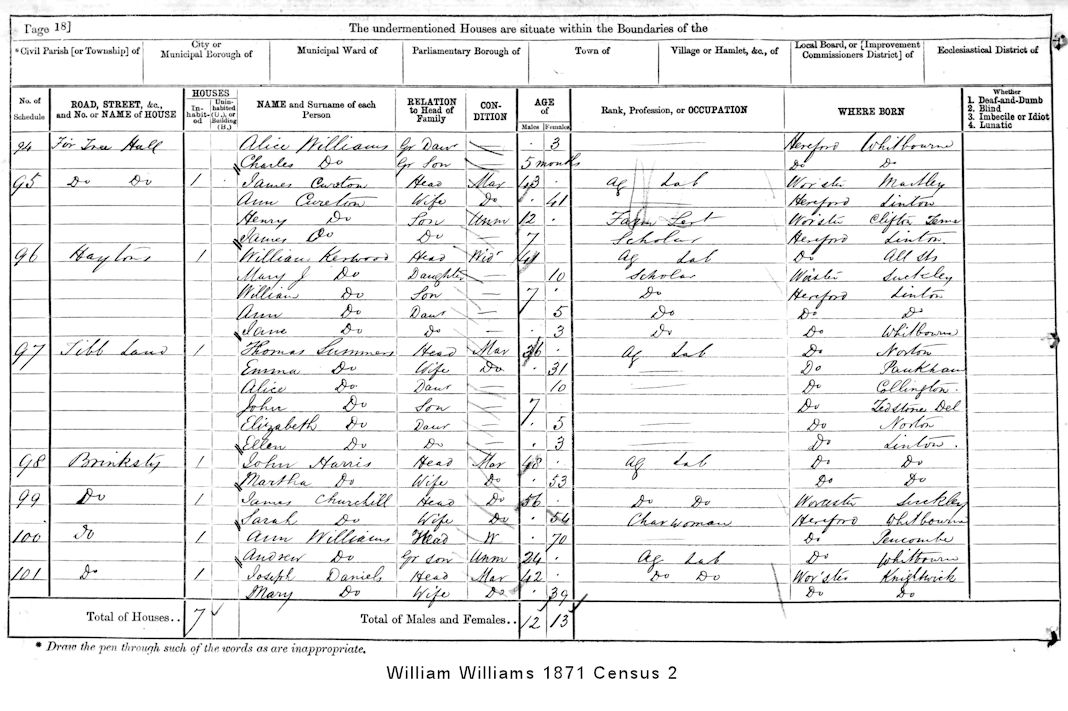 Page 18]
The undermentioned Houses are situate within the Boundaries of the
*Civil Parish [or Township] of
City or Municipal Borough of
Municipal Ward of
Parliamentary Borough of
Town of
Village or Hamlet, &c., of
Local Board, or [Improvement Commissioners District] of
Ecclesiastical District of
No. of Schedule
ROAD, STREET, &c., and No. or NAME of HOUSE
HOUSES
In-habit-ed
Unin-habited (U.), or Building (B.)
NAME and Surname of each Person
RELATION to Head of Family
CON-DITION
AGE of
Males
Females
Rank, Profession, or OCCUPATION
WHERE BORN
Whether
1. Deaf-and-Dumb
2. Blind
3. Imbecile or Idiot
4. Lunatic
94 Hall Alice Williams Gr Daur 3 Hereford Whitbourne
Charles Do Gr Son 5 months Do Do
95 Do Do 1 James Cureton Head Mar 43 Ag Lab Wor'ster Martley
Ann Cureton Wife Do 41 Hereford Linton
Henry Do Son Unm 12 Farm Wor'ster Clifton Teme
James Do Do 7 Scholar Hereford Linton
96 Haytons 1 William Kerwood Head Widr 41 Ag Lab Do
Mary J Do Daughter 10 Scholar Wor'ster Suckley
William Do Son 7 Do Hereford Linton
Ann Do Daur 5 Do Do Do
Jane Do Do 3 Do Do Whitbourne
97 Tibb Land 1 Thomas Summers Head Mar 36 Ag Lab Do Norton
Emma Do Wife Do 31 Do
Alice Do Daur 10 Do Collington
John Do Son 7 Do Tedstone Del
Elizabeth Do Daur 5 Do Norton
Ellen Do Do 3 Do Linton
98 Brinksty 1 John Harris Head Mar 48 Ag Lab Do Do
Martha Do Wife Do 53 Do Do
99 Do 1 James Churchill Head Do 56 Do Do Worcester Suckley
Sarah Do Wife Do 54 Charwoman Hereford Whitbourne
100 Do 1 Ann Williams Head W 70 Do Pencombe
Andrew Do Gr son Unm 24 Ag Lab Do Whitbourn
101 Do 1 Joseph Daniels Head Mar 42 Do Do Wor'ster Knightwick
Mary Do Wife Do 39 Do Do
Total of Houses.. 7
Total of Males and Females.. 12 13
* Draw the pen through such of the words as are inappropriate.
William Williams 1871 Census 2